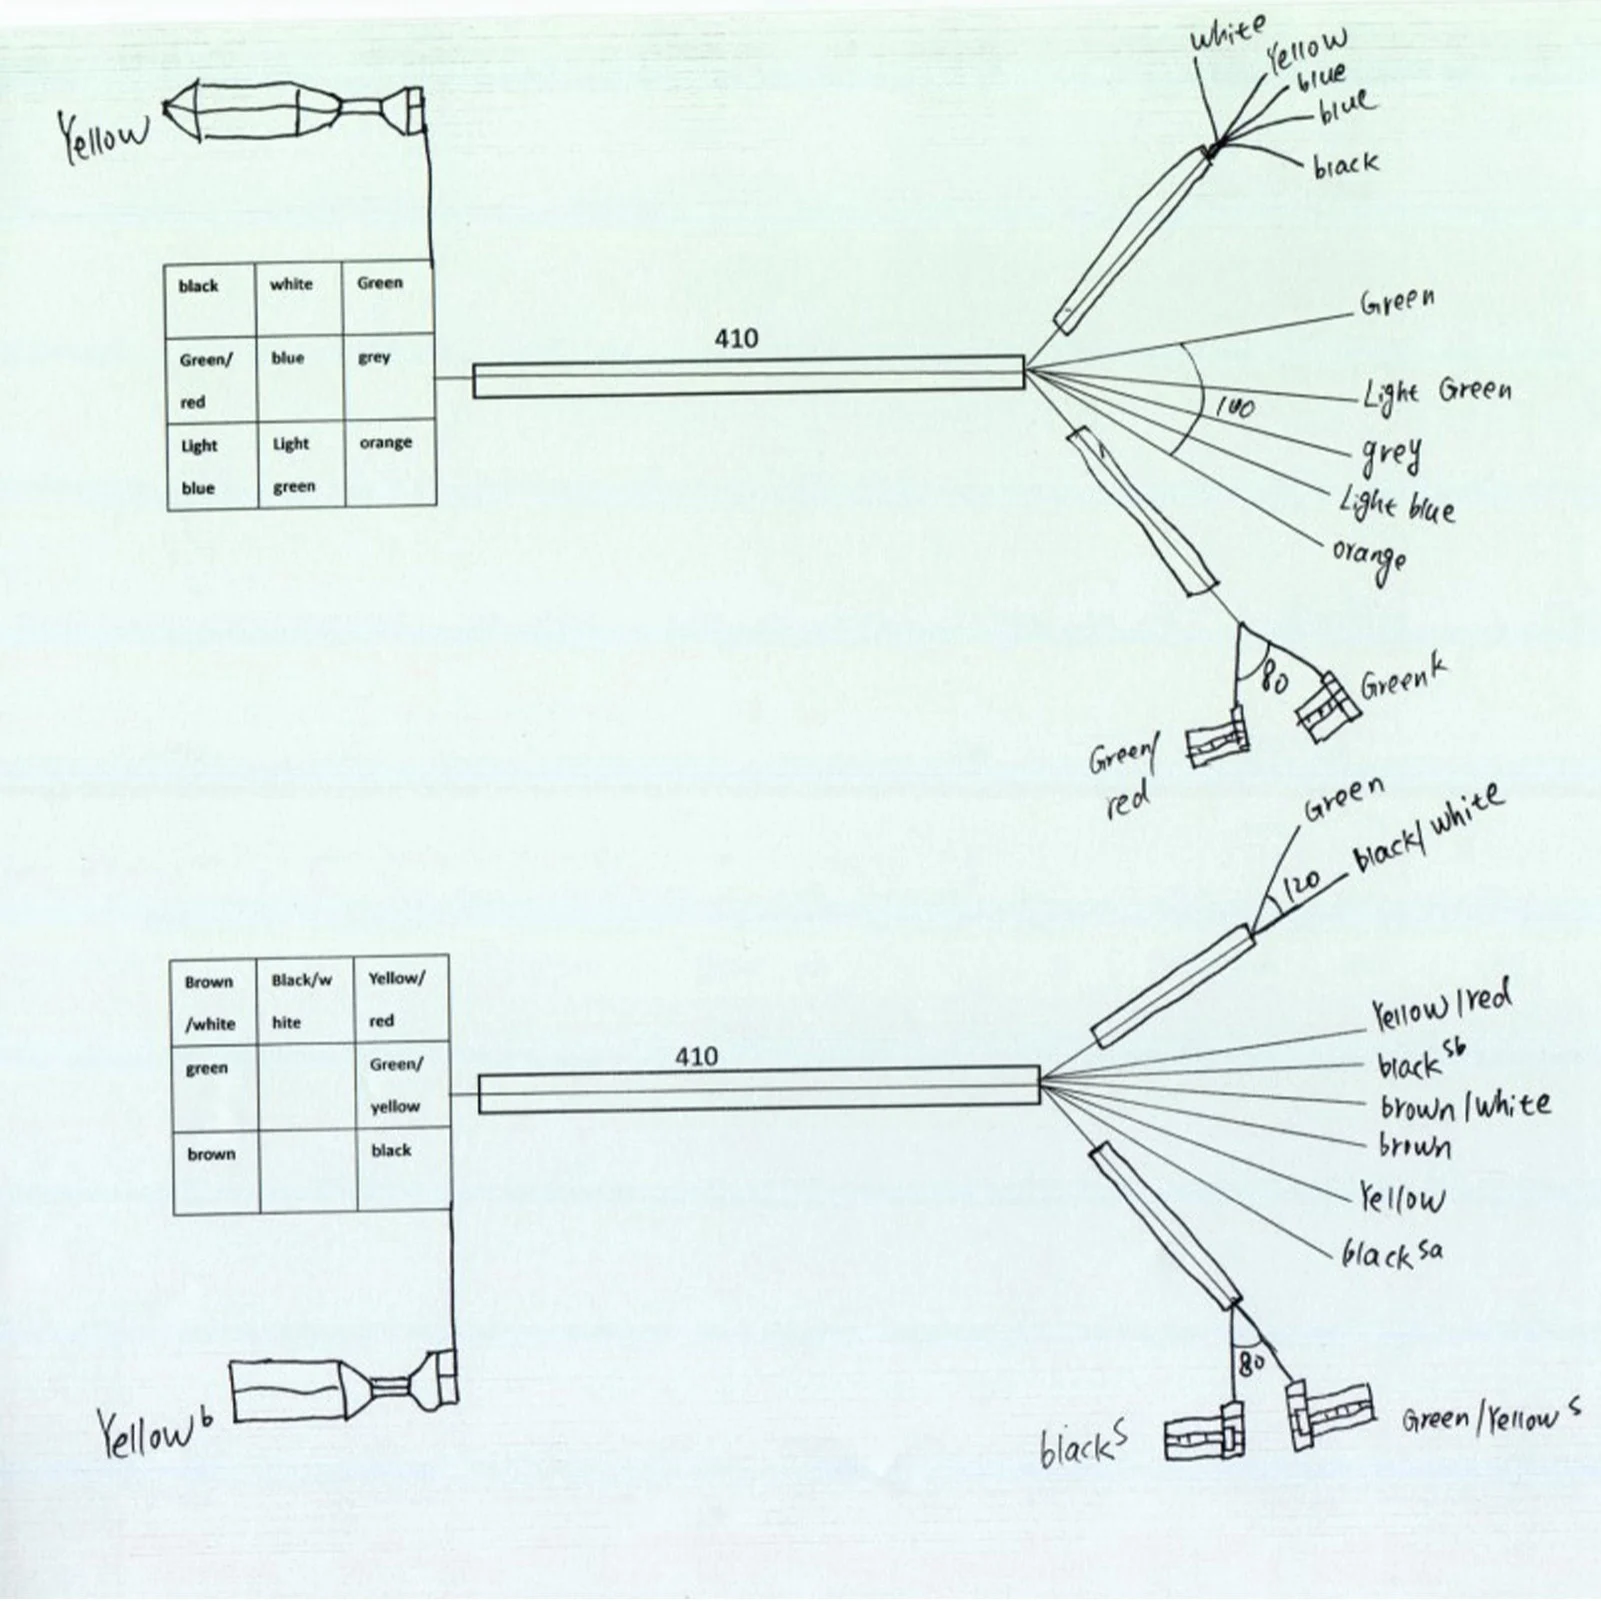 white
Yellow
blue
blue
black
Yellow
black white Green
Green/ blue grey
red
Light Light orange
blue green
410
Green
Light Green
100
grey
Light blue
orange
80
Green k
Green/
red
Green
black/white
120
Brown Black/w Yellow/
/white hite red
green Green/
yellow
brown black
410
Yellow/red
black sb
brown/white
brown
Yellow
black sa
80
Yellow b
black s
Green/Yellow s